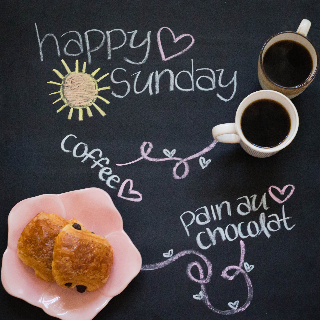 happy
sunday
coffee
pain au
chocolat